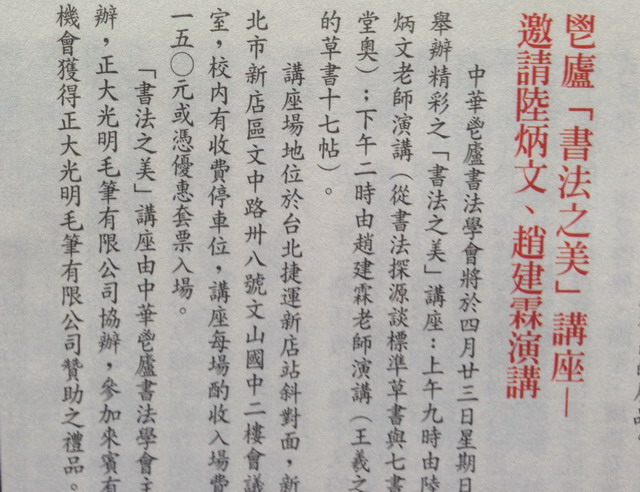 鬯廬「書法之美」講座—
邀請陸炳文、趙建霖演講
中華鬯廬書法學會將於四月廿三日星期日
舉辦精彩之「書法之美」講座：上午九時由陸
炳文老師演講（從書法探源談標準草書與七書
堂奧）；下午二時由趙建霖老師演講（王羲之
的草書十七帖）。
講座場地位於台北捷運新店站斜對面，新
北市新店區文中路卅八號文山國中二樓會議
室，校內有收費停車位，講座每場酌收入場費
一五〇元或憑優惠套票入場。
「書法之美」講座由中華鬯廬書法學會主
辦，正大光明毛筆有限公司協辦，參加來賓有
機會獲得正大光明毛筆有限公司贊助之禮品。